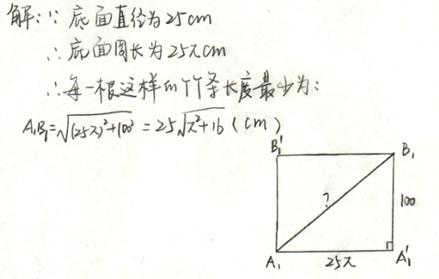 解:∵底面直径为25cm
∴底面周长为25πcm
∴每一根这样的竹条长度最少为:
A₁B₁=√(25π)²+100² = 25√π²+16 (cm)
B₁' B₁
? 100
A₁ 25π A₁'